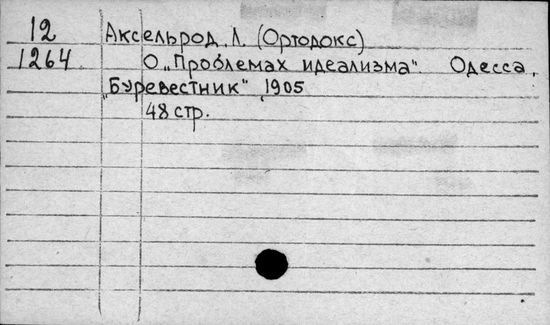 12 Аксельрод, Л. (Ортодокс)
1264 О „Проблемах идеализма". Одесса,
„Буревестник" 1905
48 стр.